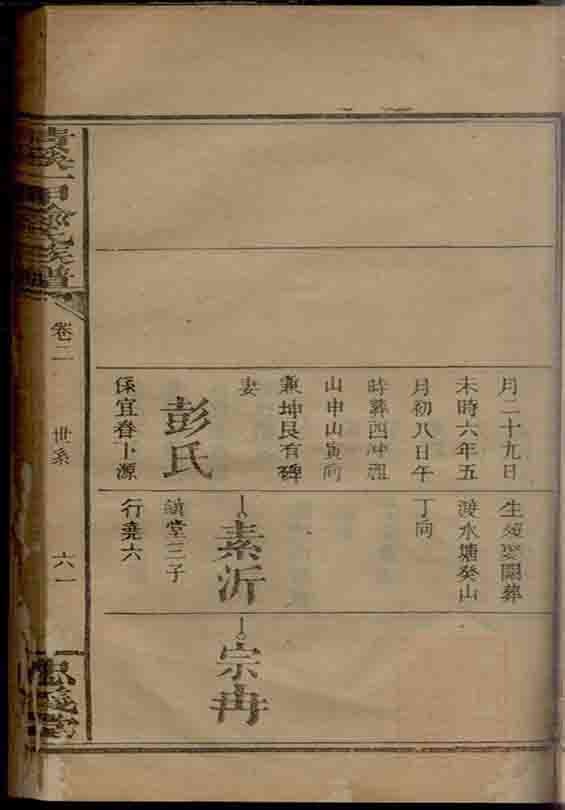 月二十九日
未時六年五
月初八日午
時葬西冲祖
山申山寅向
兼坤艮有碑
妻
彭氏
係宜春卜源
生葬
水塘癸山
丁向
素沂
堂三子
行堯六
宗冉
一甲氏族譜
卷二
世系
六一
義堂